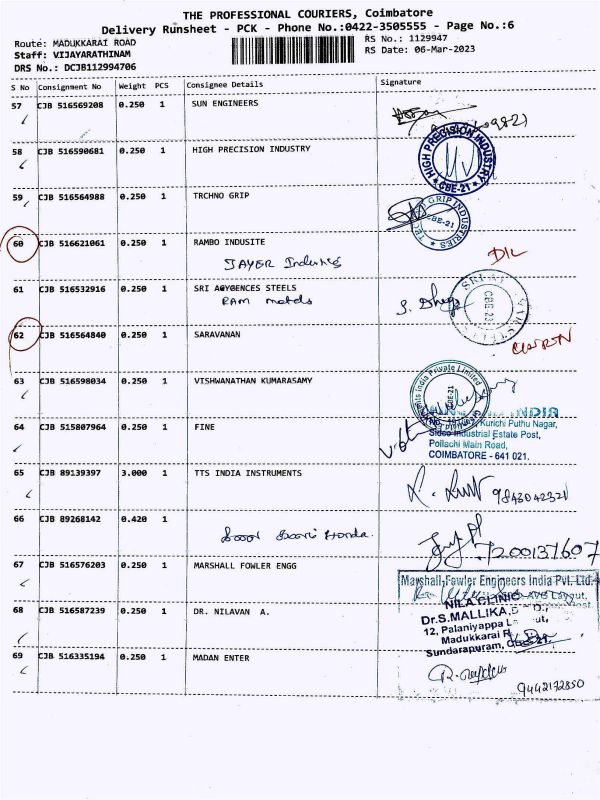 THE PROFESSIONAL COURIERS, Coimbatore
Delivery Runsheet - PCK - Phone No.:0422-3505555 - Page No.:6
Route: MADUKKARAI ROAD
RS No.: 1129947
Staff: VIJAYARATHINAM
RS Date: 06-Mar-2023
DRS No.: DCJB112994706
S No Consignment No Weight PCS Consignee Details Signature
57 CJB 516569208 0.250 1 SUN ENGINEERS
58 CJB 516590681 0.250 1 HIGH PRECISION INDUSTRY
HIGH PRECISION INDUSTRY
CBE-21
59 CJB 516564988 0.250 1 TRCHNO GRIP
GRIP INDUSTRIES
CBE-21
60 CJB 516621061 0.250 1 RAMBO INDUSITE
DIL
61 CJB 516532916 0.250 1 SRI AGYGENCES STEELS
RAM metals
CBE-23
62 CJB 516564840 0.250 1 SARAVANAN
63 CJB 516598034 0.250 1 VISHWANATHAN KUMARASAMY
India Private Limited
CBE-21
64 CJB 515807964 0.250 1 FINE
INDIA
Kurichi Puthu Nagar,
Sidco Industrial Estate Post,
Pollachi Main Road,
COIMBATORE - 641 021.
65 CJB 89139397 3.000 1 TTS INDIA INSTRUMENTS
9843042321
66 CJB 89268142 0.420 1
Honda
7200137607
67 CJB 516576203 0.250 1 MARSHALL FOWLER ENGG
Marshall Fowler Engineers India Pvt. Ltd.
68 CJB 516587239 0.250 1 DR. NILAVAN A.
NILA CLINIC
Dr.S.MALLIKA,
12, Palaniyappa
Madukkarai R
Sundarapuram,
69 CJB 516335194 0.250 1 MADAN ENTER
9442172850